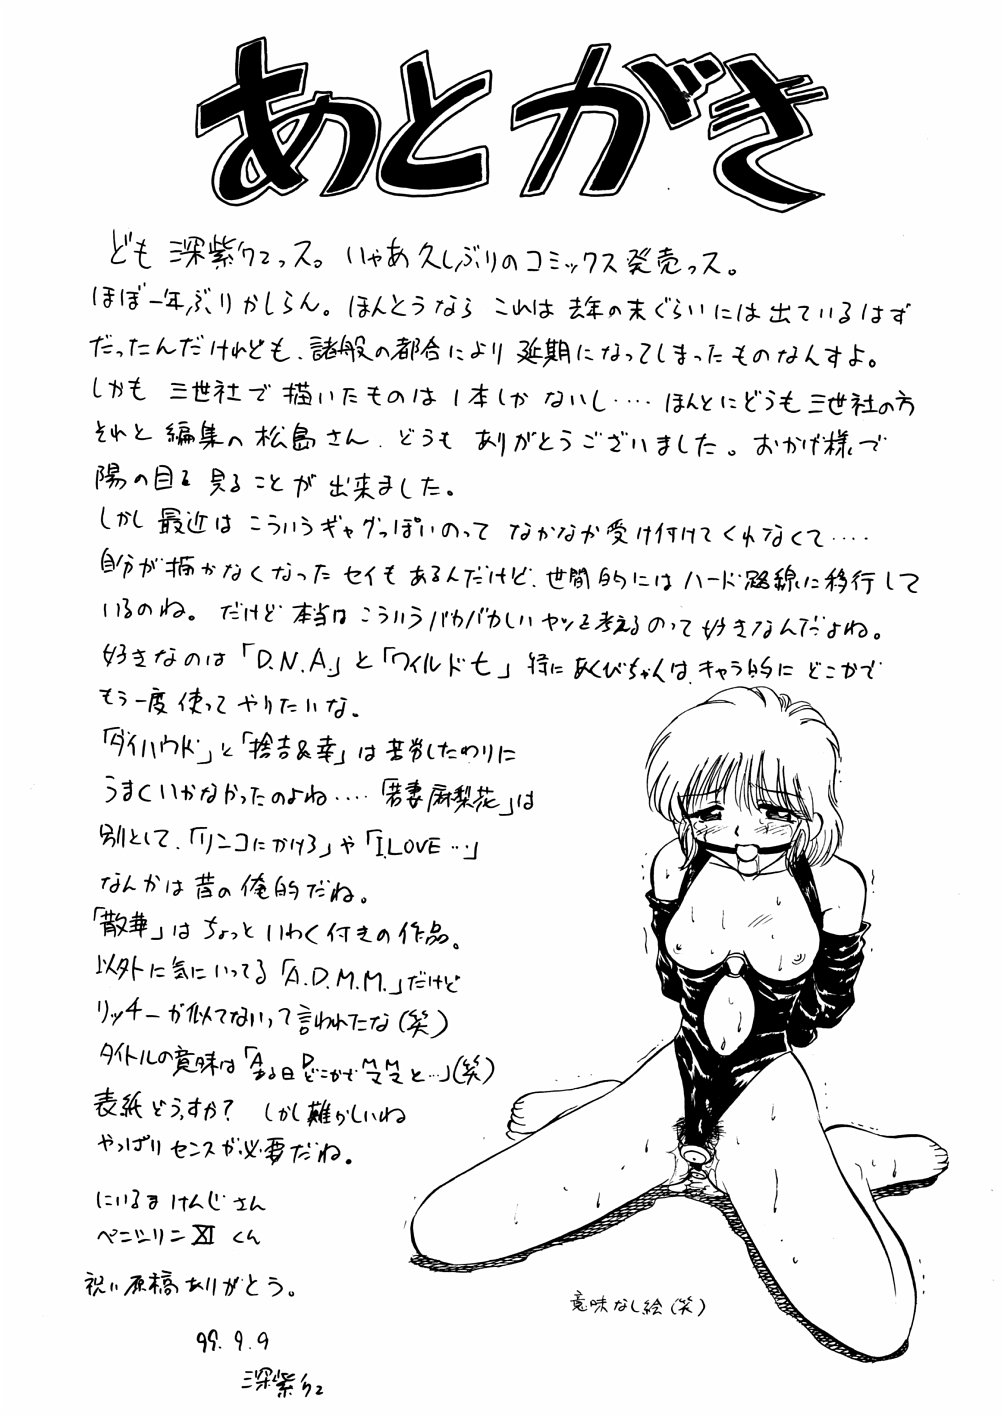 あとがき
ども 深紫クエっス。いやあ久しぶりのコミックス発売っス。
ほぼ一年ぶりかしらん。ほんとうなら これは 去年の末ぐらいには出ているはず
だったんだけれども、諸般の都合により 延期になってしまったものなんすよ。
しかも 三世社で描いたものは 1本しかないし‥‥ ほんとにどうも三世社の方
それと 編集の松島さん、どうも ありがとうございました。おかげ様で
陽の目を見ることが出来ました。
しかし 最近は こういうギャグっぽいのって なかなか受け付けてくれなくて‥‥
自分が描かなくなったセイもあるんだけど、世間的にはハード路線に移行して
いるのね。だけど 本当はこういうバカバカしいヤツを考えるのって好きなんだよね。
好きなのは「D.N.A.」と「ワイルド七」特にあくびちゃんは、キャラ的に どこかで
もう一度使って やりたいな。
「ダイハウド」と「捨吉&幸」は苦労したわりに
うまくいかなかったのよね‥‥「若妻麻梨花」は
別として、「リンコにかけろ」や「I.LOVE…」
なんかは 昔の俺的だね。
「散華」はちょっといわく付きの作品。
以外に気にいってる「A.D.M.M.」だけど
リッチーが似てないって言われたな(笑)
タイトルの意味は「ある日どこかでママと…」(笑)
A D M M
表紙どうすか? しかし難かしいね
やっぱりセンスが必要だね。
にいるまけんじさん
ペニシリンXIくん
祝い原稿ありがとう。
99.9.9
深紫クエ
意味なし絵(笑)